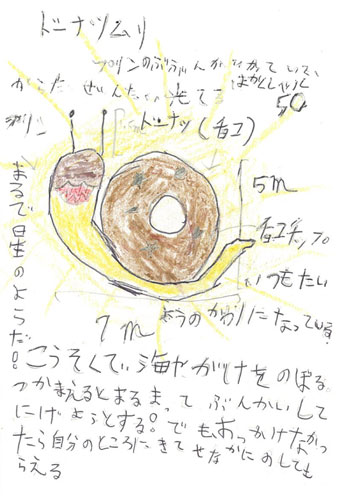 ドーナツムリ
プリンのぶぶんが
からだぜんたい光ってる
50
プリン
ドーナツ(チョコ)
5m
チョコチップ
いつもたい
ようのかわりになっている。
7m
まるで星のようだ!
こうそくで海やがけをのぼる
つかまえるとまるまってぶんかいして
にげようとする。でもおっかけなかっ
たら自分のところにきてせなかにのしても
らえる